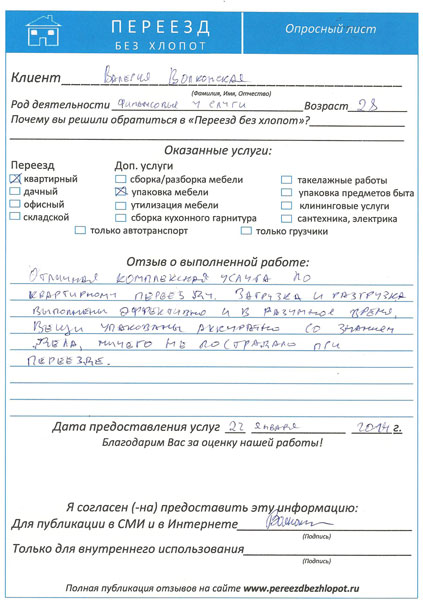 ПЕРЕЕЗД
БЕЗ ХЛОПОТ
Опросный лист
Клиент Валерия Волконская
(Фамилия, Имя, Отчество)
Род деятельности Финансовые услуги Возраст 28
Почему вы решили обратиться в «Переезд без хлопот»?
Оказанные услуги:
Переезд Доп. услуги
квартирный сборка/разборка мебели такелажные работы
дачный упаковка мебели упаковка предметов быта
офисный утилизация мебели клининговые услуги
складской сборка кухонного гарнитура сантехника, электрика
только автотранспорт только грузчики
Отзыв о выполненной работе:
Отличная комплексная услуга по
квартирному переезду. Загрузка и разгрузка
выполнены эффективно и в разумное время.
Вещи упакованы аккуратно со знанием
дела, ничего не пострадало при
переезде.
Дата предоставления услуг 22 января 2014 г.
Благодарим Вас за оценку нашей работы!
Я согласен (-на) предоставить эту информацию:
Для публикации в СМИ и в Интернете
(Подпись)
Только для внутреннего использования
(Подпись)
Полная публикация отзывов на сайте www.pereezdbezhlopot.ru